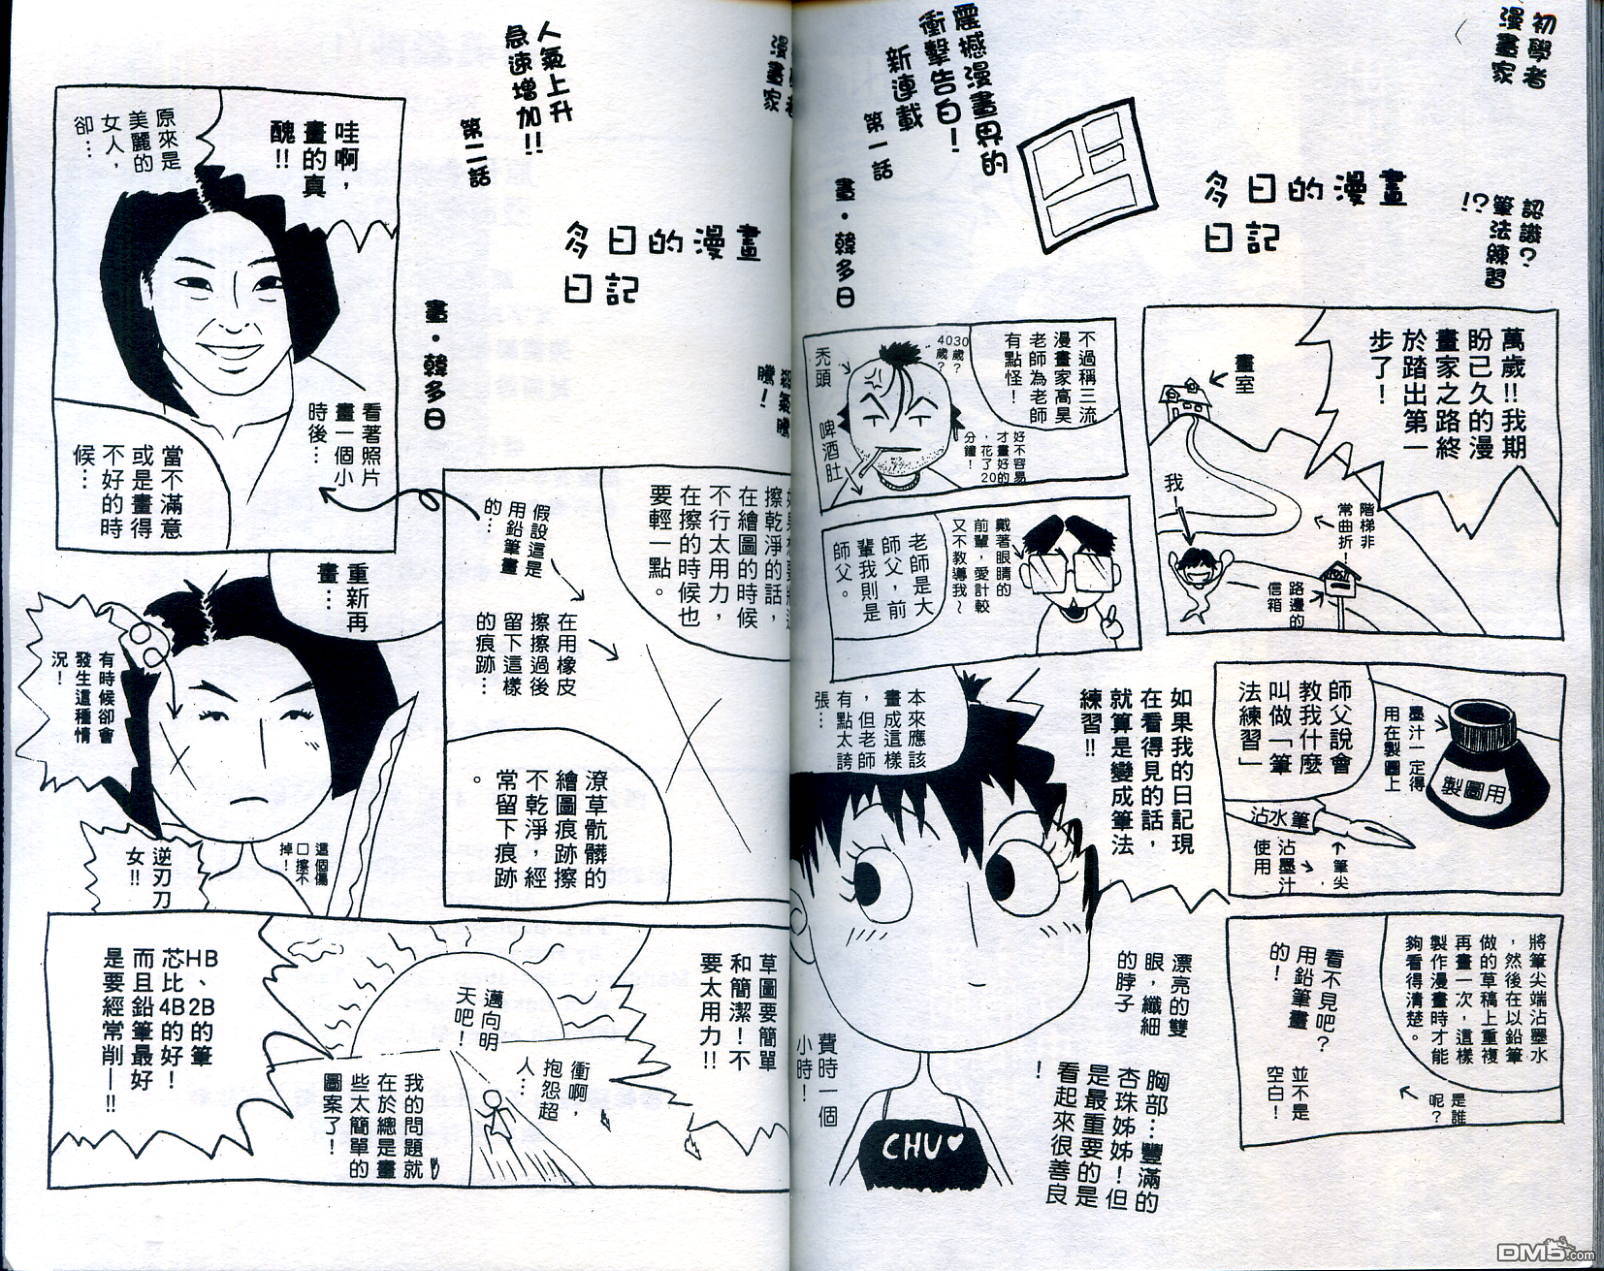 初學者
漫畫家
認識？
筆法練習
!?
多日的漫畫
日記
震撼漫畫界的
衝擊告白！
新連載
第一話
畫・韓多日
萬歲!!我期
盼已久的漫
畫家之路終
於踏出第一
步了！
畫室
我
階梯非
常曲折！
路邊的
信箱
不過稱三流
漫畫家高昊
老師為老師
有點怪！
4030
歲？歲？
禿頭
啤酒肚
好不容易
才畫好的
，花了20
分鐘！
戴著眼睛的
前輩，愛計較
又不教導我～
老師是大
師父，前
輩我則是
師父。
師父說會
教我什麼
叫做「筆
法練習」
墨汁一定得
用在製圖上
製圖用
沾水筆
筆尖
沾墨汁
使用
如果我的日記現
在看得見的話，
就算是變成筆法
練習!!
本來應該
畫成這樣
，但老師
有點太誇
張…
將筆尖端沾墨水
，然後在以鉛筆
做的草稿上重複
再畫一次，這樣
製作漫畫時才能
夠看得清楚。
是誰
呢？
看不見吧？
用鉛筆畫
的！
並不是
空白！
漂亮的雙
眼，纖細
的脖子
胸部…豐滿的
杏珠姊姊！但
是最重要的是
看起來很善良
！
費時一個
小時！
CHU♥
漫畫家
人氣上升
急速增加!!
第二話
多日的漫畫
日記
畫・韓多日
騰！
哇啊，
畫的真
醜!!
原來是
美麗的
女人，
卻…
看著照片
畫一個小
時後…
當不滿意
或是畫得
不好的時
候…
擦乾淨的話，
在繪圖的時候
不行太用力，
在擦的時候也
要輕一點。
假設這是
用鉛筆畫
的…
在用橡皮
擦擦過後
留下這樣
的痕跡…
潦草骯髒的
繪圖痕跡擦
不乾淨，經
常留下痕跡
。
重新再
畫…
有時候卻會
發生這種情
況！
這個傷
口擦不
掉！
逆刃刀
女!!
草圖要簡單
和簡潔！不
要太用力!!
邁向明
天吧！
衝啊，
抱怨超
人…
我的問題就
在於總是畫
些太簡單的
圖案了！
HB、2B的筆
芯比4B的好！
而且鉛筆最好
是要經常削—!!
DM5.com